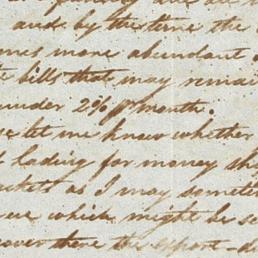 and by the time the
more abundant
bills that may remain
under 2% pr month.
let me know whether
lading for money
as I may sometim
which might be s
over there the export d